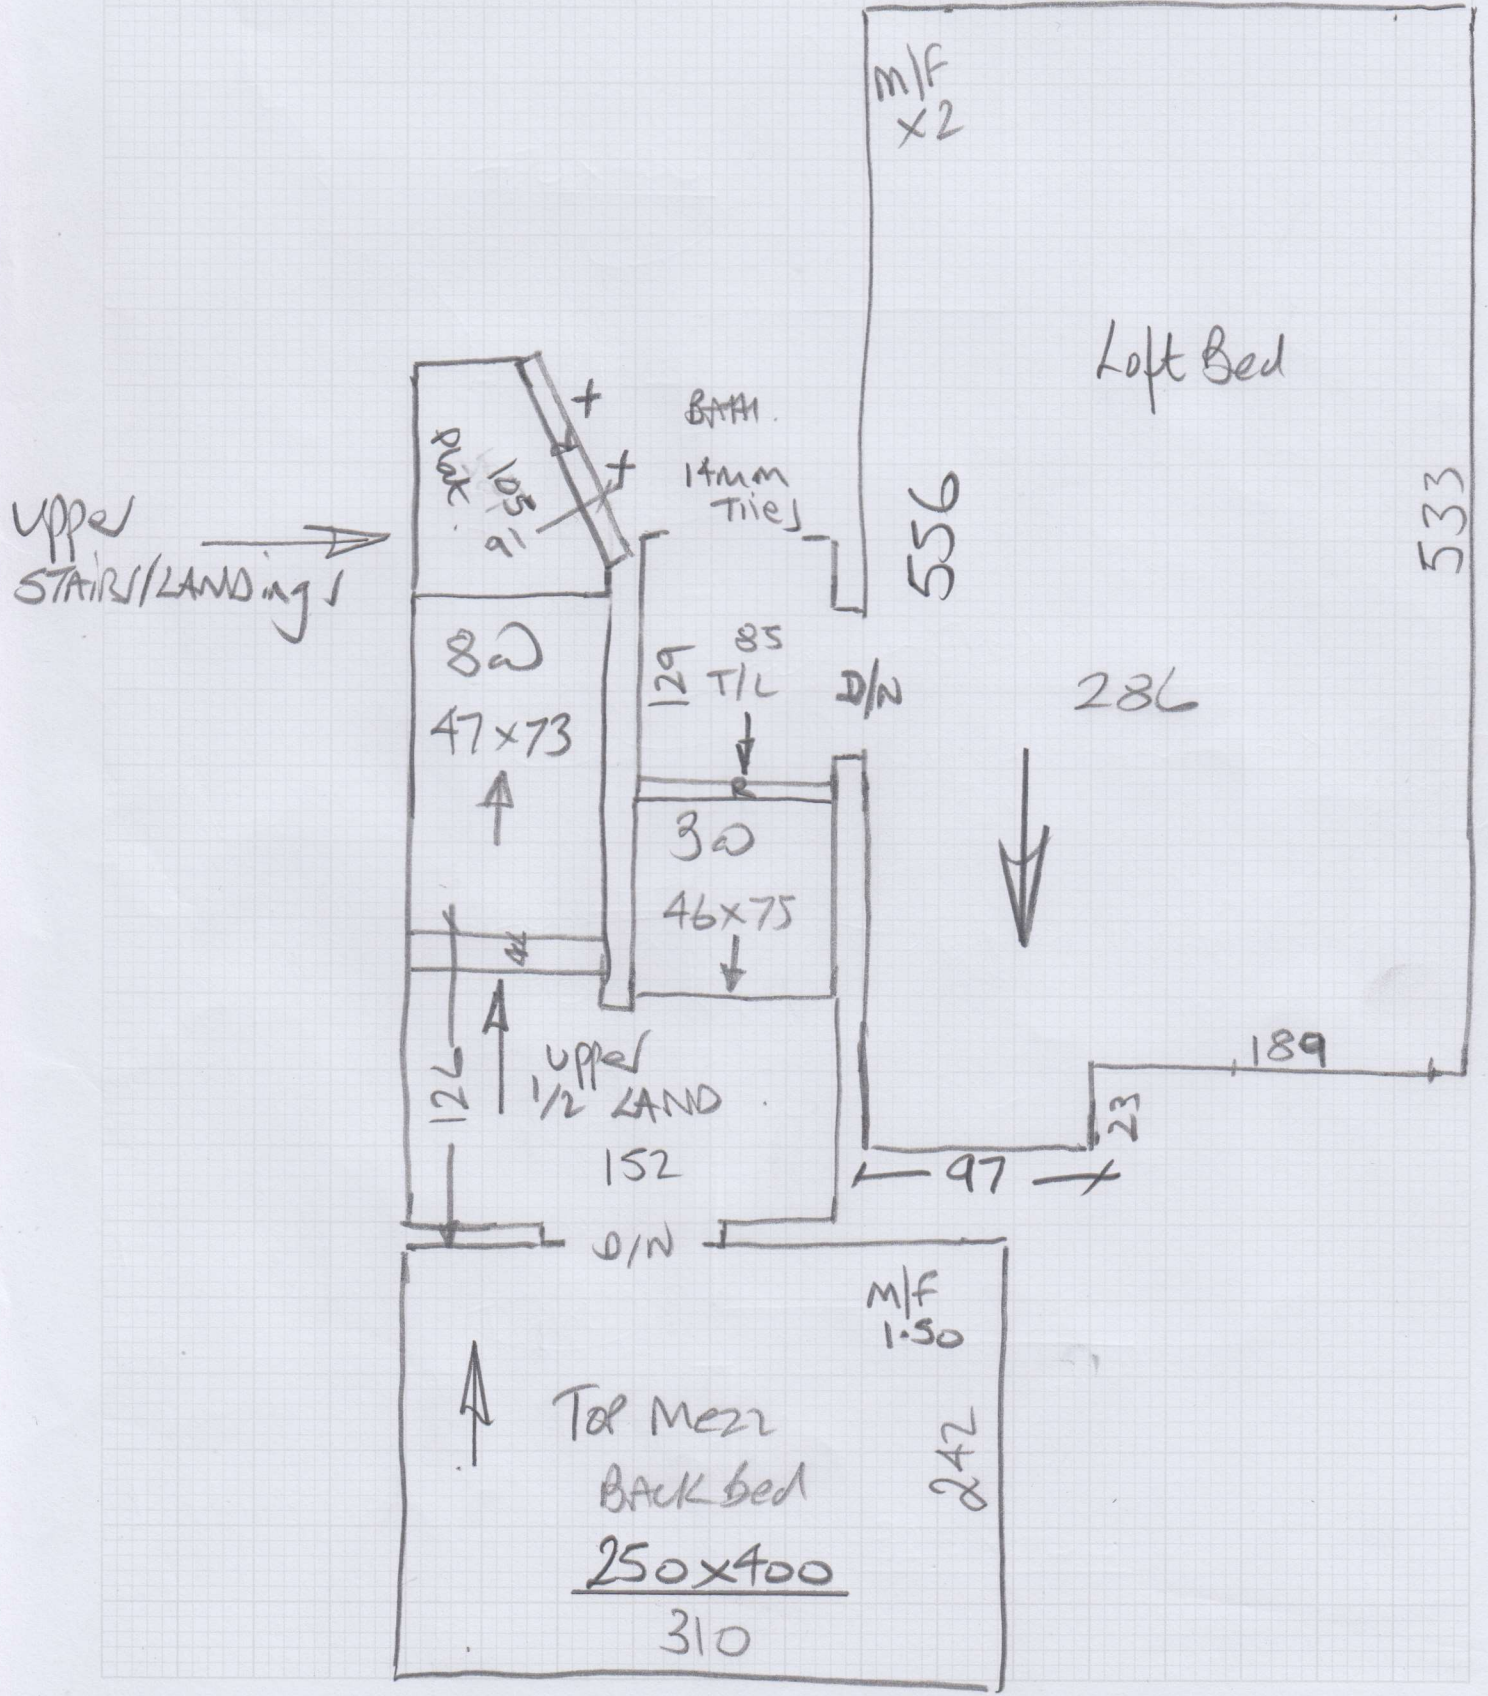 M/F
x2
Loft Bed
556
533
286
189
23
97
BATH.
14mm
Tiles
Plat.
105
91
upper
STAIRS/LANDings
8@
47x73
129
85
T/L
D/N
R
3@
46x75
126
upper
1/2 LAND
152
D/N
M/F
1.50
Top Mezz
BACK bed
242
250x400
310